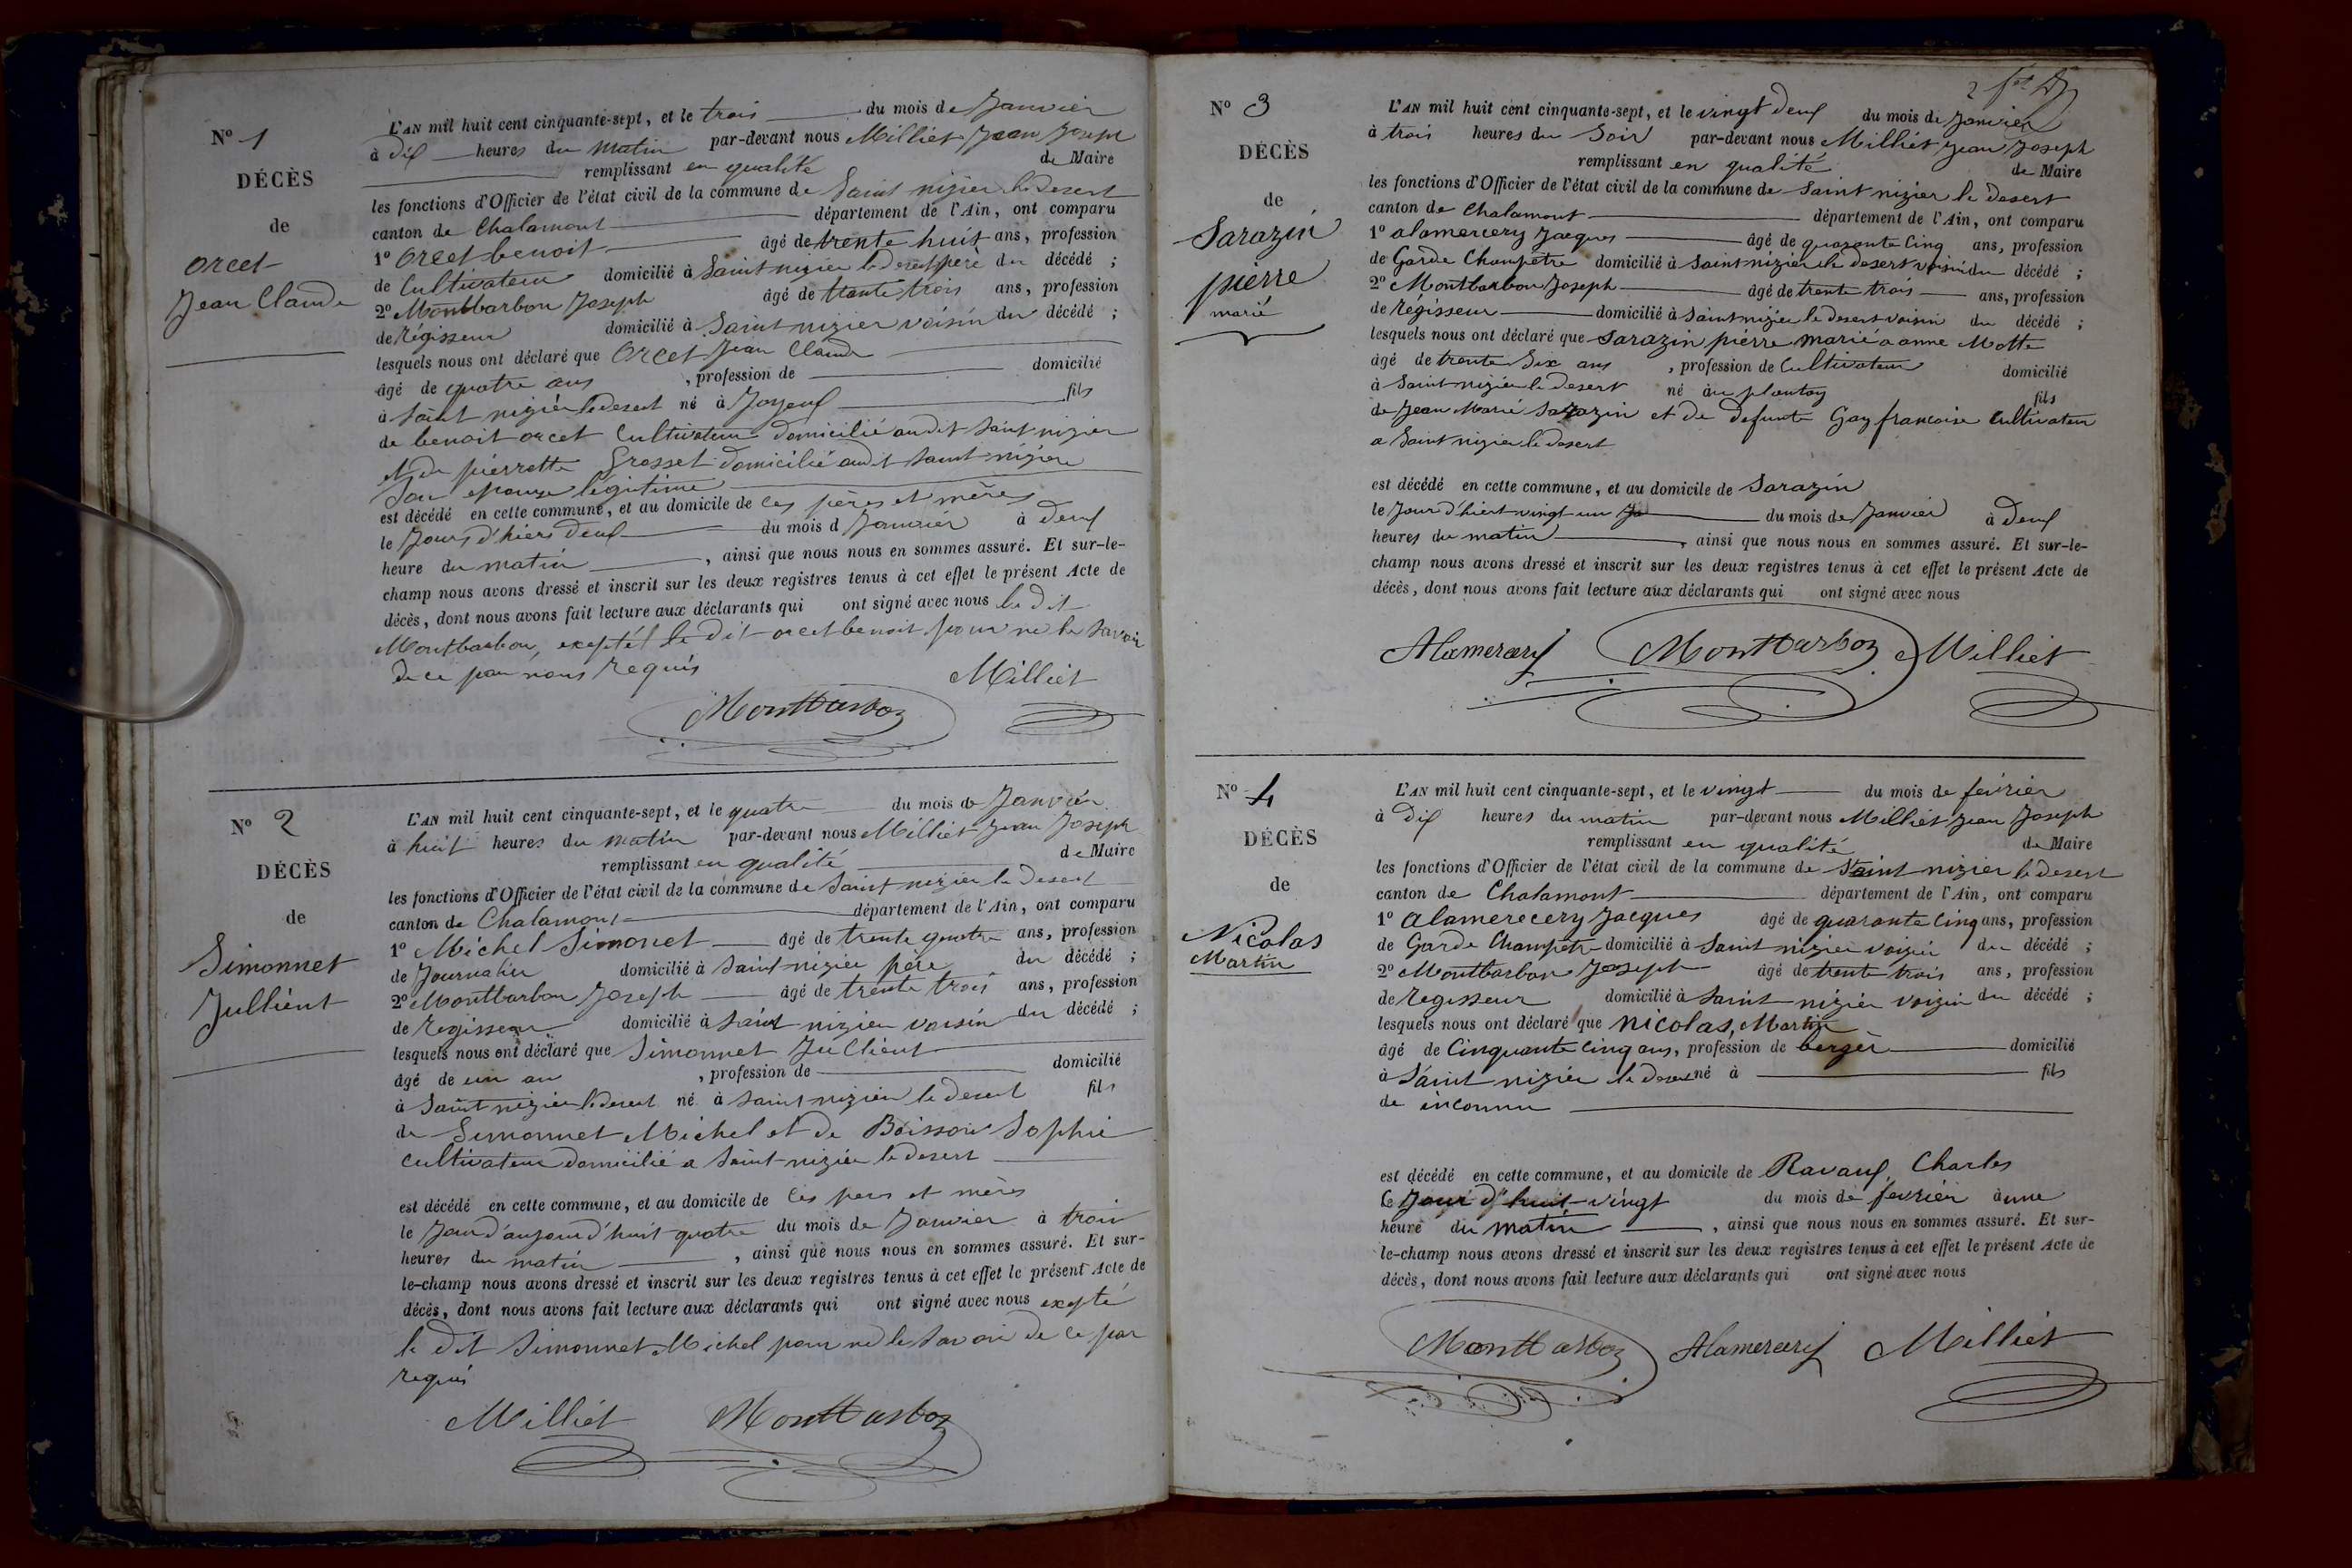 N° 1
DÉCÈS
de
orcet
Jean Claude
L'AN mil huit cent cinquante-sept, et le trois du mois de Janvier
à dix heures du matin par-devant nous Milliet Jean Joseph
remplissant en qualité de Maire
les fonctions d'Officier de l'état civil de la commune de Saint nizier le desert
canton de Chalamont département de l'Ain, ont comparu
1° Orcet benoit âgé de trente huit ans, profession
de Cultivateur domicilié à Saint nizier le desert père du décédé ;
2° Montbarbon Joseph âgé de trante trois ans, profession
de régisseur domicilié à Saint nizier voisin du décédé ;
lesquels nous ont déclaré que Orcet Jean Claude
âgé de quatre ans , profession de domicilié
à Saint nizier le desert né à Joyeux fils
de benoit orcet Cultivateur domicilié audit Saint nizier
et de pierrette Grosset domicilié audit Saint nizier
Son epouse légitime
est décédé en cette commune, et au domicile de ces pères et mères
le Jours d'hiers deux du mois d Janvier à deux
heure du matin , ainsi que nous nous en sommes assuré. Et sur-le-
champ nous avons dressé et inscrit sur les deux registres tenus à cet effet le présent Acte de
décès, dont nous avons fait lecture aux déclarants qui ont signé avec nous le dit
Montbarbon, exepté le dit orcet benoit pour ne le savoir
de ce par nous requis
Milliet
Montbarbon
N° 2
DÉCÈS
de
Simonnet
Jullient
L'AN mil huit cent cinquante-sept, et le quatre du mois de Janvier
à huit heures du matin par-devant nous Milliet Jean Joseph
remplissant en qualité de Maire
les fonctions d'Officier de l'état civil de la commune de Saint nizier le desert
canton de Chalamont département de l'Ain, ont comparu
1° Michel Simonet âgé de trente quatre ans, profession
de Journalier domicilié à Saint nizier père du décédé ;
2° Montbarbon Joseph âgé de trente trois ans, profession
de regisseur domicilié à Saint nizier voisin du décédé ;
lesquels nous ont déclaré que Simonnet Jullient
âgé de un an , profession de domicilié
à Saint nizier le desert né à Saint nizier le desert fils
de Simonnet Michel et de Boisson Sophie
Cultivateur domicilié a Saint nizier le desert
est décédé en cette commune, et au domicile de ces pers et mères
le Jour d'aujourd'huit quatre du mois de Janvier à trois
heures du matin , ainsi que nous nous en sommes assuré. Et sur-
le-champ nous avons dressé et inscrit sur les deux registres tenus à cet effet le présent Acte de
décès, dont nous avons fait lecture aux déclarants qui ont signé avec nous exepté
le dit Simonnet Michel pour ne le savoir de ce par
requis
Milliet Montbarbon
N° 3
DÉCÈS
de
Sarazin
pierre
marié
L'AN mil huit cent cinquante-sept, et le vingt deux du mois de Janvier
à trois heures du Soir par-devant nous Milliet Jean Joseph
remplissant en qualité de Maire
les fonctions d'Officier de l'état civil de la commune de Saint nizier le desert
canton de Chalamont département de l'Ain, ont comparu
1° alamercery Jacques âgé de quarante Cinq ans, profession
de Garde Champetre domicilié à Saint nizier le desert voisin du décédé ;
2° Montbarbon Joseph âgé de trente trois ans, profession
de régisseur domicilié à Saint nizier le desert voisin du décédé ;
lesquels nous ont déclaré que Sarazin pierre marié a anne Motte
âgé de trente Six ans , profession de Cultivateur domicilié
à Saint nizier le desert né au plantay fils
de Jean Marie Sarazin et de defunte Gay francoise Cultivateur
a Saint nizier le desert
est décédé en cette commune, et au domicile de Sarazin
le Jour d'hiert vingt un du mois de Janvier à deux
heures du matin , ainsi que nous nous en sommes assuré. Et sur-le-
champ nous avons dressé et inscrit sur les deux registres tenus à cet effet le présent Acte de
décès, dont nous avons fait lecture aux déclarants qui ont signé avec nous
Alamercery Montbarbon Milliet
N° 4
DÉCÈS
de
Nicolas
Martin
L'AN mil huit cent cinquante-sept, et le vingt du mois de fevrier
à dix heures du matin par-devant nous Milliet Jean Joseph
remplissant en qualité de Maire
les fonctions d'Officier de l'état civil de la commune de Saint nizier le desert
canton de Chalamont département de l'Ain, ont comparu
1° Alamerecery Jacques âgé de quarante Cinq ans, profession
de Garde Champetre domicilié à Saint nizier voizin du décédé ;
2° Montbarbon Joseph âgé de trente trois ans, profession
de regisseur domicilié à Saint nizier voizin du décédé ;
lesquels nous ont déclaré que Nicolas, Martin
âgé de Cinquante Cinq ans, profession de berger domicilié
à Saint nizier le desert né à fils
de inconnu
est décédé en cette commune, et au domicile de Ravaux Charles
le Jour d'huit vingt du mois de fevrier à une
heure du matin , ainsi que nous nous en sommes assuré. Et sur-
le-champ nous avons dressé et inscrit sur les deux registres tenus à cet effet le présent Acte de
décès, dont nous avons fait lecture aux déclarants qui ont signé avec nous
Montbarbon Alamercery Milliet